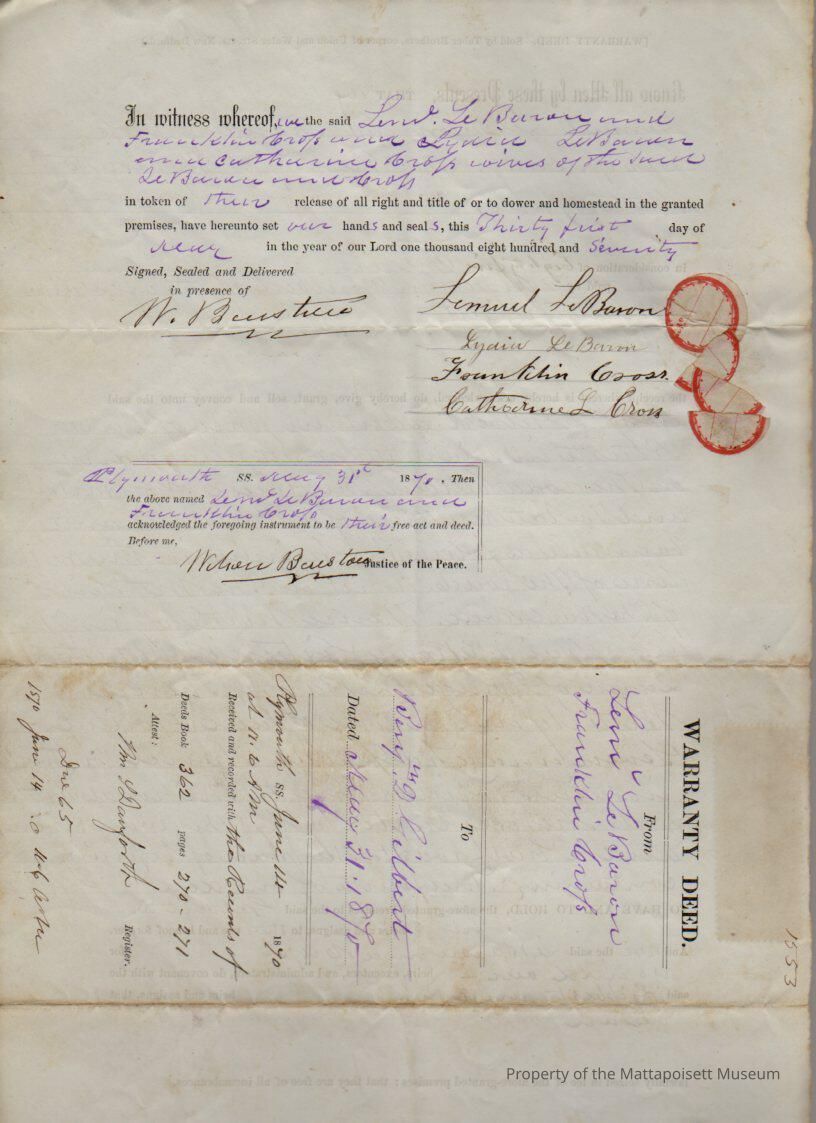 In witness whereof, we the said Lem.l LeBaron and
Franklin Cross and Lydia LeBaron
and Catharine Cross wives of the said
LeBaron and Cross
in token of their release of all right and title of or to dower and homestead in the granted
premises, have hereunto set our hands and seals, this Thirty first day of
May in the year of our Lord one thousand eight hundred and Seventy
Signed, Sealed and Delivered
in presence of
W. Barstow
Lemuel LeBaron
Lydia LeBaron
Franklin Cross
Catharine L Cross
Plymouth SS. May 31st 1870. Then
the above named Lem.l LeBaron and
Franklin Cross
acknowledged the foregoing instrument to be their free act and deed.
Before me,
Wilson Barstow Justice of the Peace.
WARRANTY DEED.
From
Lem.l LeBaron
Franklin Cross
To
Benj.n D. Gilbert
Dated May 31. 1870
Plymouth SS. June 14 1870
at M. & A M
Received and recorded with the Records of
Deeds Book 362 pages 270-271
Attest:
Wm S Danforth Register.
Due 65
1870 June 14
1553
Property of the Mattapoisett Museum